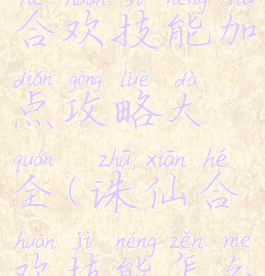 hé huān jì néng jiā
合欢技能加
diǎn gōng lüè dà
点攻略大
quán zhū xiān hé
全(诛仙合
huān jì néng zěn me
欢技能怎么